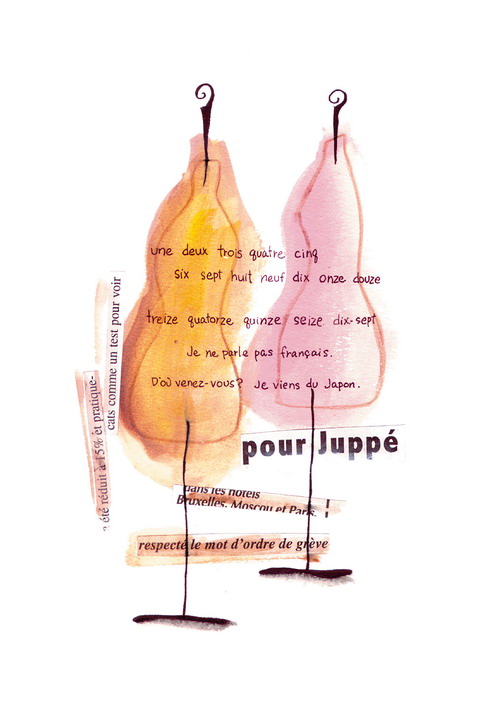 une deux trois quatre cinq
six sept huit neuf dix onze douze
treize quatorze quinze seize dix-sept
Je ne parle pas français.
D'où venez-vous? Je viens du Japon.
cats comme un test pour voir
a été réduit à 15% et pratique-
pour Juppé
dans les hôtels
Bruxelles, Moscou et Paris.
respecté le mot d'ordre de grève